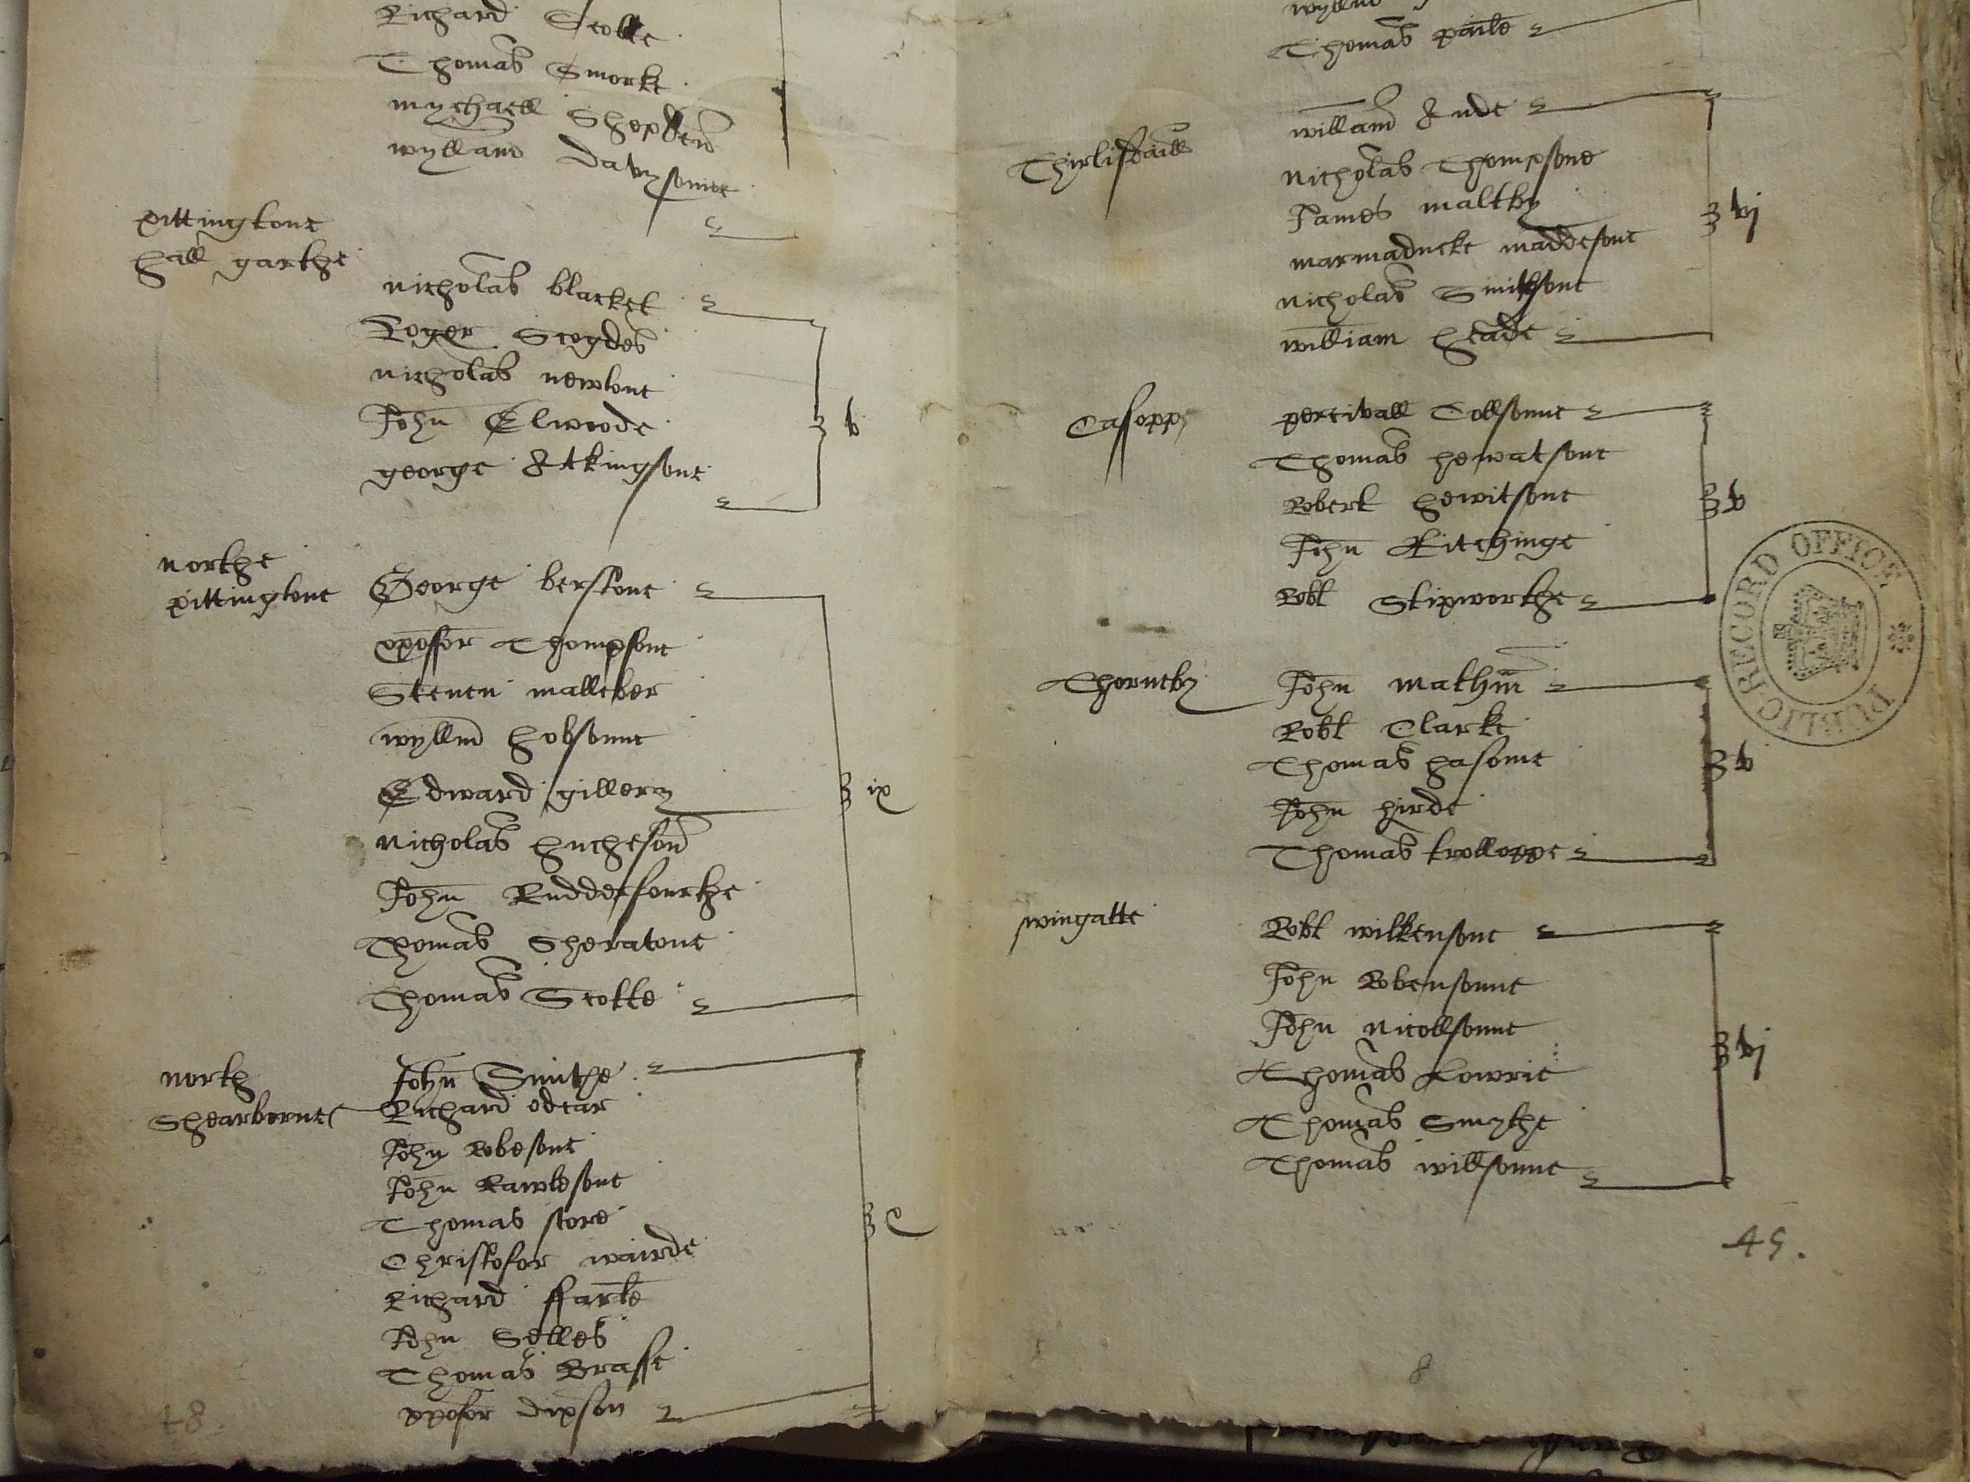 Richard Scotte
Thomas Smorke
mychaell Shepden
wyllam davysonne
pittingtone
hall garthe
nicholas blacket
Roger Scogdes
nicholas newtone
John Elwoode
george Atkingsone
v
northe
pittingtone
George berstone
xpofor Thompsone
Steuen malleber
wyllm hobsonne
Edward gillery
Nicholas hucheson
John Ruddersfourthe
Thomas Sheratone
Thomas Scotte
ix
north
Shearborne
John Smithe
Richard odcar
John Robesone
John Rawlesone
Thomas store
Christofor wairde
Richard ffarle
John Selles
Thomas Brasse
xpofor dipson
48
Thomas paile
Thirlis
willam Aude
Nicholas Thompsone
James maltby
marmaducke maddesone
nicholas Smithsone
william heade
vj
Cassopp
percivall Collsonne
Thomas hewatsone
Robert hewitsone
John Kitchinge
Robt Skipworthe
v
Thorneby
John mathm
Robt Clarke
Thomas hasonne
John hirde
Thomas trolloppe
v
wingatte
Robt wilkensone
John Robensonne
John nicollsonne
Thomas Lowrie
Thomas Smythe
Thomas willsonne
vj
PUBLIC RECORD OFFICE
45.
8